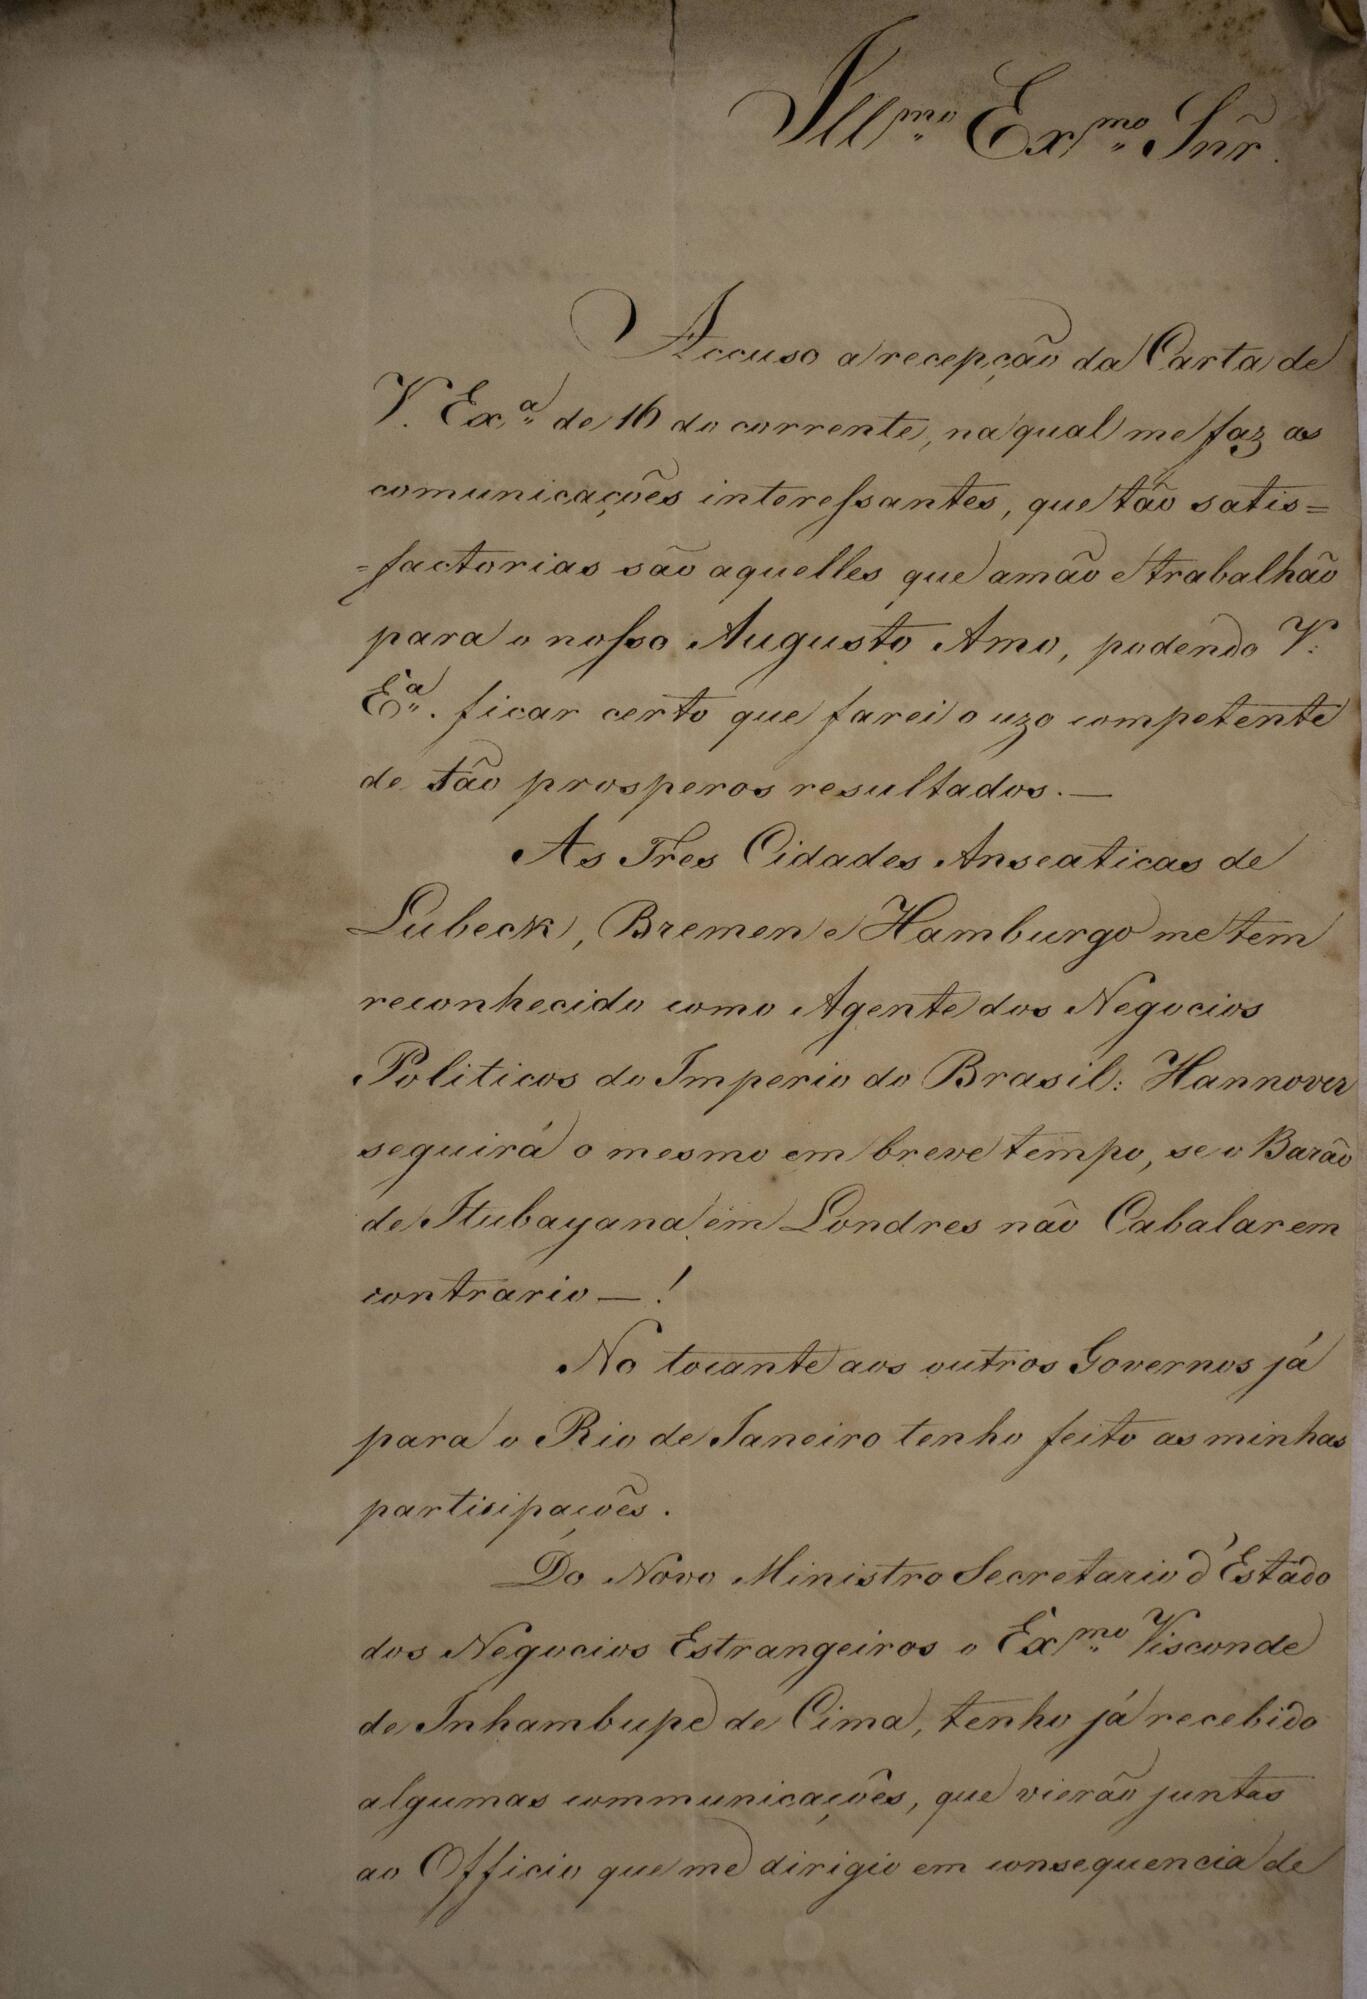 Illmo Exmo Snr.
Accuso a recepção da Carta de
V. Exa de 16 do corrente, na qual me faz as
comunicações interessantes, que tão satis=
=factorias são aquelles que amão e trabalhão
para o nosso Augusto Amo, podendo V.
Ea. ficar certo que farei o uzo competente
de tão prosperos resultados.—
As Tres Cidades Anseaticas de
Lubeck, Bremen e Hamburgo me tem
reconhecido como Agente dos Negocios
Politicos do Imperio do Brasil: Hannover
seguirá o mesmo em breve tempo, se o Barão
de Itubayana em Londres não Cabalar em
contrario — !
No tocante aos outros Governos já
para o Rio de Janeiro tenho feito as minhas
partisipações.
Do Novo Ministro Secretario d'Estado
dos Negocios Estrangeiros o Exmo Visconde
de Inhambupe de Cima, tenho já recebido
algumas communicações, que vierão juntas
ao Officio que me dirigio em consequencia de